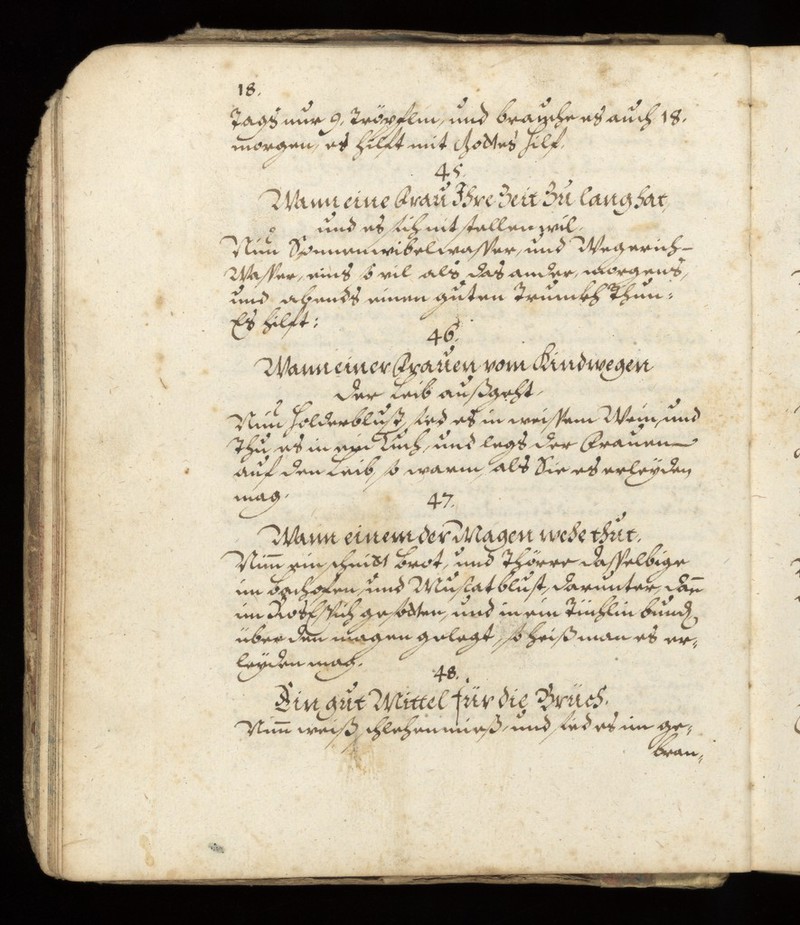 18.
Tags nur 9. Tröpflin, und brauche es auch 18.
morgen, es hilft mit Gottes hilf.
45.
Wann eine Frau Ihre Zeit Zu lang hat,
und es sich nit stellen wil.
Nim Sonnenwibelwasser, und Wegerich-
Wasser, eins so vil als das ander, morgens,
und abends einen guten Trunckh Thun:
Es hilft:
46.
Wann einer Frauen vom Kind wegen
der Leib außgeht.
Nim Holderblust, sied es in weissem Wein, und
Thu es in ein Tuch, und legs der Frauen
auf den Leib, so warm, als Sie es erleyden
mag.
47.
Wann einem der Magen wehe thut.
Nim̄ ein schnitt brot, und Thörre dasselbige
im bachofen, und Muscatblust, darunter, dan̄
im gesotten, und in ein Tüchlin bund,
über den magen gelegt, so heiß man es er-
leyden mag.
48.
Ein gut Mittel für die Brüch.
Nim̄ weiß schlehenmieß, und sied es im ge-
bran-